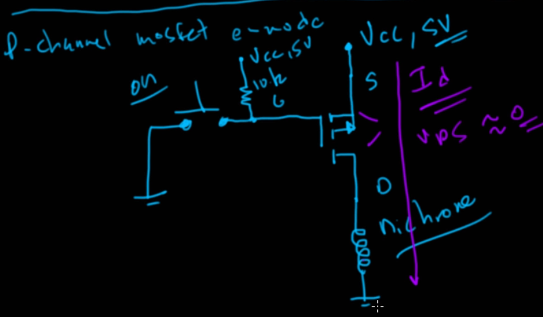 P-channel mosfet e-mode
Vcc, 5V
Vcc, 5V
on
10k
G
S
Id
VDS ≈ 0
D
nichrome